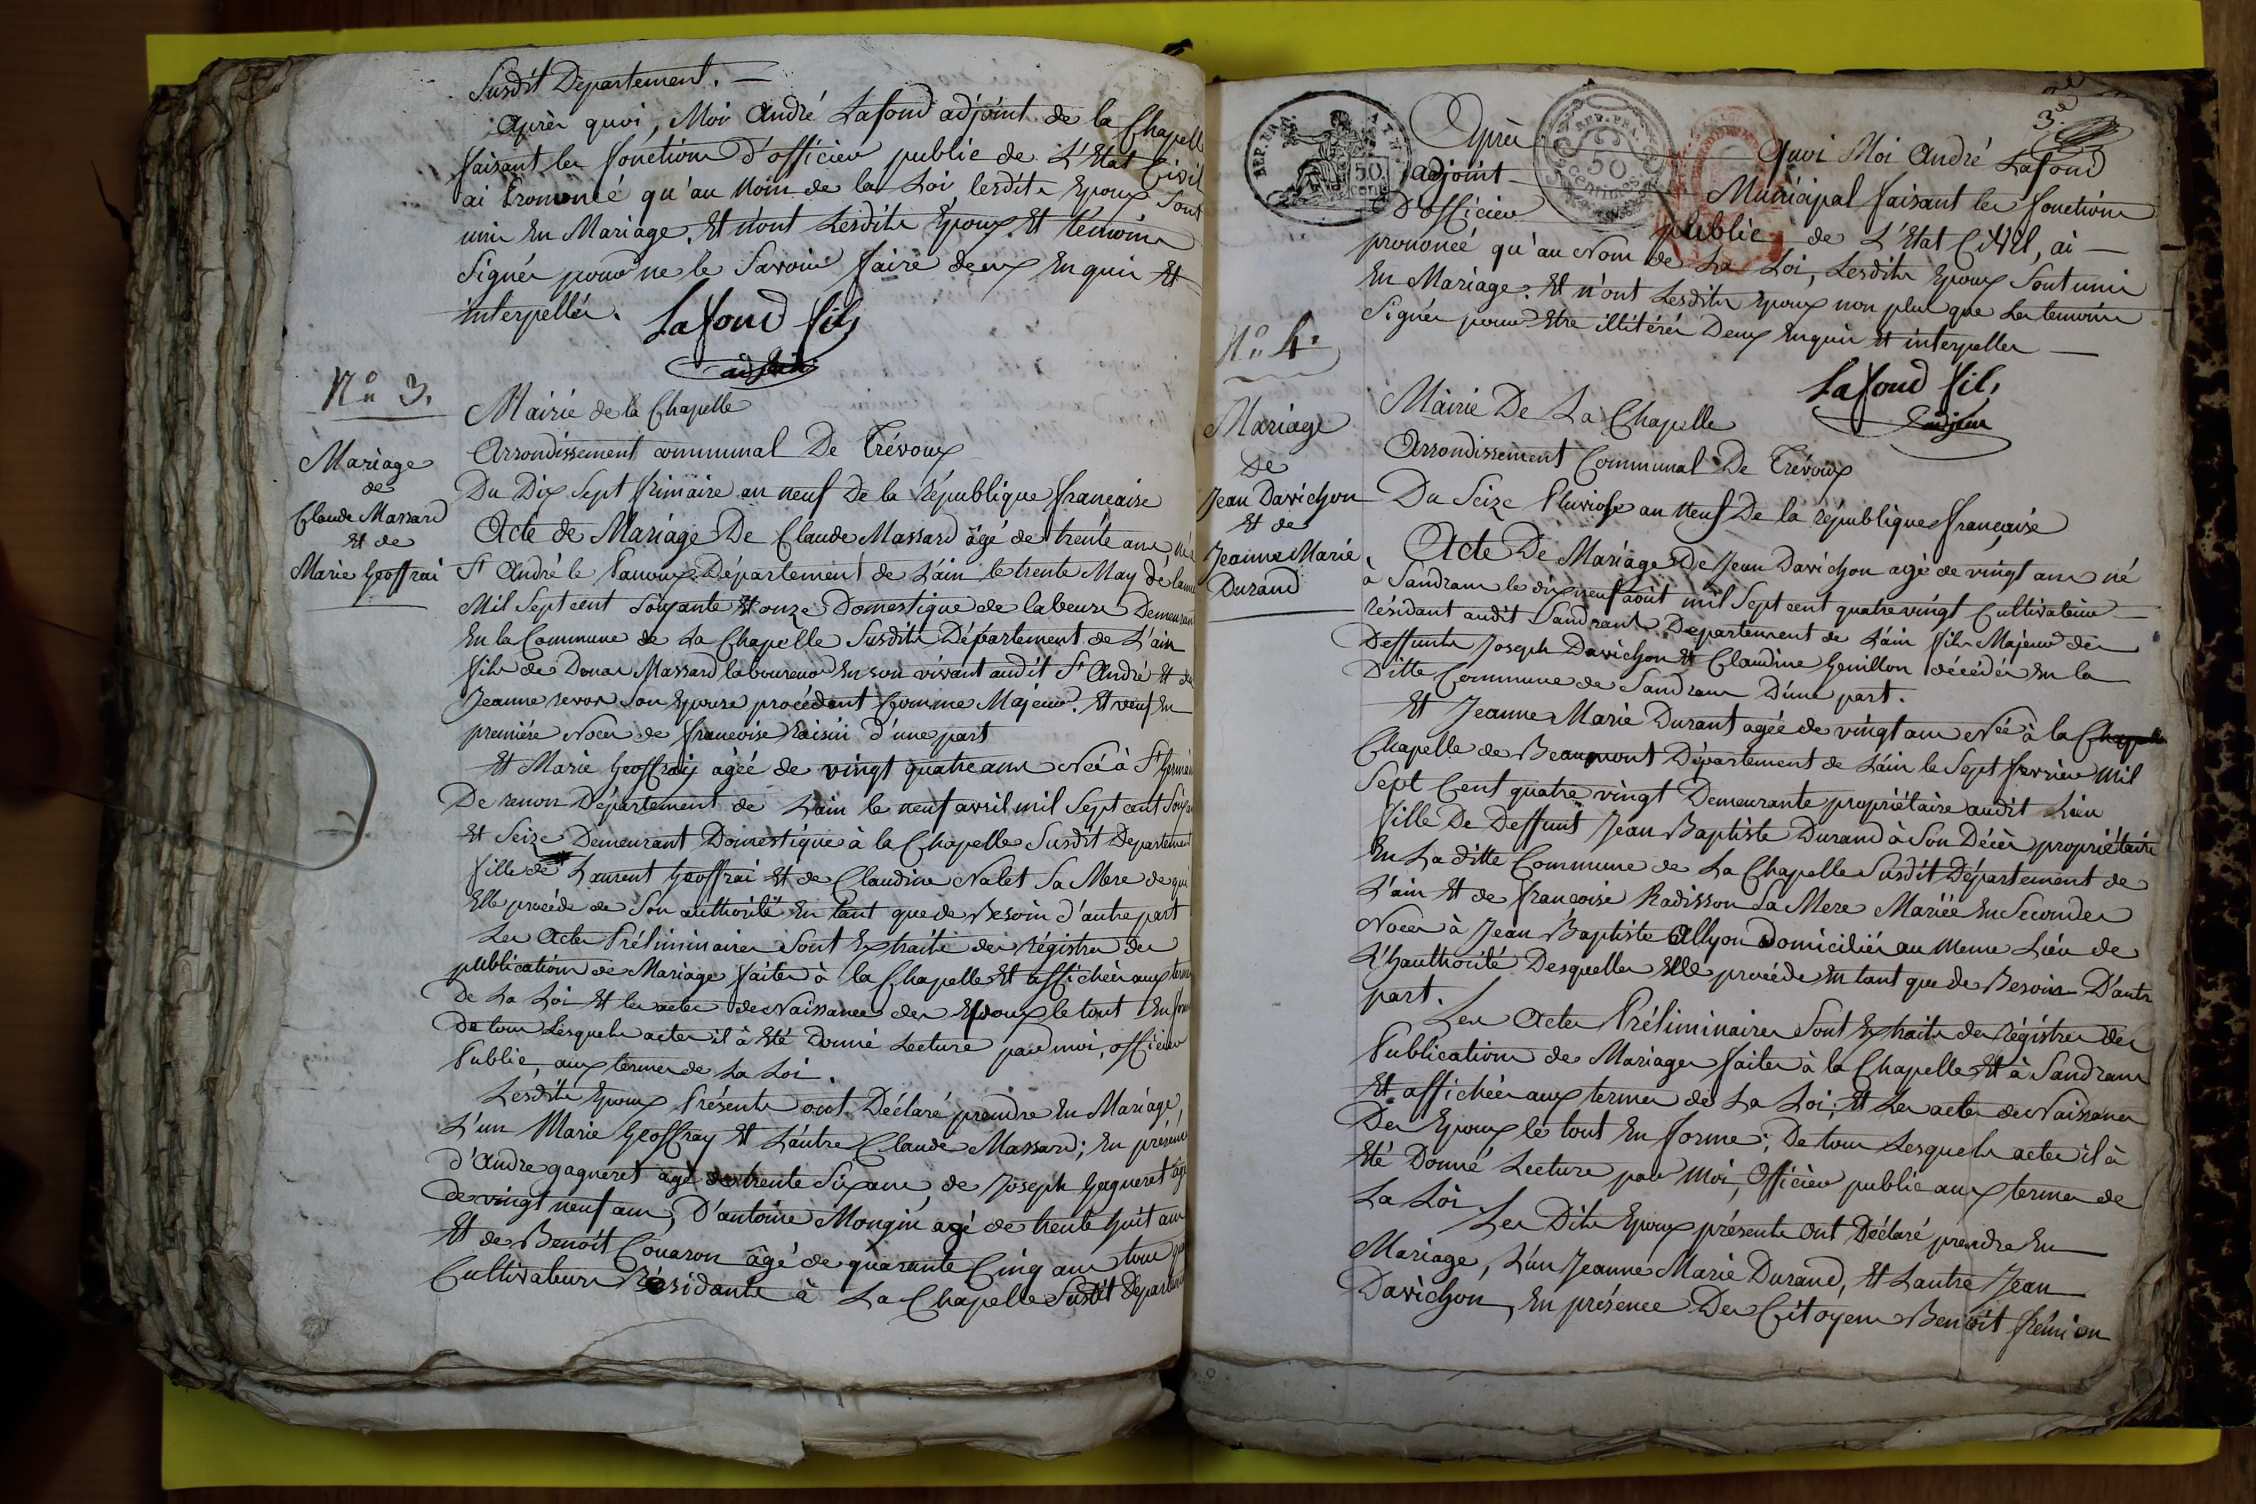 Susdit Département. —
Après quoi, Moi André Lafond adjoint de la Chapelle
faisant les fonctions d'officier public de L'Etat Civil
ai Prononcé qu'au Nom de la Loi lesdits Epoux Sont
unis En Mariage, Et n'ont Lesdits Epoux Et témoins
Signés pour ne le Savoir faire deux Enquis Et
interpellés.
Lafond fils
adjoint
N° 3.
Mariage
de
Claude Massard
Et de
Marie Geoffrai
Mairie de la Chapelle
Arrondissement communal De Trévoux
Du Dix Sept frimaire an neuf De la République française
Acte de Mariage De Claude Massard âgé de trente ans, né
St André le Panoux Département de L'ain le trente May de lanné
Mil Sept cent Soixante Et onze Domestique de labeurs Demeuran
En la Commune de La Chapelle Susdite Département de L'ain
fils de Donat Massard laboureur En son vivant audit St André Et de
Jeanne revon Son Epouse procédent Comme Majeur. Et veuf En
première Noces de françoise raisin d'une part
Et Marie Geoffray agéé de vingt quatre ans Néé à St Germain
De renon Département de Lain le neuf avril mil Sept cent Soixan
Et Seize Demeurant Domestique à la Chapelle Susdit Departement
fille de Laurent Geoffrai Et de Claudine Nalet Sa Mere de qui
Elle procéde de Son authorité En tant que de Besoin d'autre part
Les Actes Préliminaires Sont Extraits des régistres des
publications de Mariage faites à la Chapelle Et affichées aux termes
De La Loi Et les actes de Naissances des Epoux le tout En forme
De tous Lesquels actes il à Eté Donné Lecture par moi, officier
Public, aux termes de La Loi.
Lesdits Epoux Présents ont Déclaré prendre En Mariage,
L'un Marie Geoffray Et L'autre Claude Massard; En présence
d'André gagneret agé de trente Six ans, de Joseph Gagneret âgé
de vingt neuf ans, D'antoine Mongin agé de trente huit ans
Et de Benoit Couaron âgé de quarante Cinq ans tous
Cultivateurs Résidants à La Chapelle Susdit Departement
3e
Après Quoi Moi André Lafond
adjoint Municipal faisant les fonctions
D'officier public de L'Etat Civil, ai —
prononcé qu'au Nom de La Loi, Lesdits Epoux Sont unis
En Mariage: Et n'ont Lesdits Epoux non plus que Les temoins
Signés pour Etre illitérés Deux Enquis Et interpellés —
Lafond fils
adjoint
REP. FRA.
50
cent.
REP. FRA.
50
centimes
N° 4.
Mariage
de
Jean Davichon
Et de
Jeanne Marie
Durand
Mairie De La Chapelle
Arrondissement Communal De Trévoux
Du Seize Pluviose an Neuf De la république française
Acte De Mariage De Jean Davichon agé de vingt ans né
à Sandrans le dix neuf aoùt mil Sept cent quatre vingt Cultivateur —
résidant audit Sandrans, Departement de Lain fils Majeur des
Deffunts Joseph Davichon Et Claudine Genillon décédés En la
Ditte Commune de Sandrans D'une part.
Et Jeanne Marie Durant agéé de vingt ans Néé à la Chapelle
Chapelle de Beaumont Département de Lain le Sept fevrier Mil
Sept Cent quatre vingt Demeurante propriétaire audit Lieu
fille De Deffunt Jean Baptiste Durand à Son Décès propriétaire
En La ditte Commune de La Chapelle Susdit Département de
L'ain Et de françoise Radisson Sa Mere Mariée En Secondes
Noces à Jean Baptiste Allyon Domiciliés au Meme Lieu de
L'hauthorité Desquelles Elle procéde En tant que de Besoin D'autre
part.
Les Actes Préliminaires Sont Extraits des Régistres des
Publications de Mariages faites à la Chapelle Et à Sandrans
Et affichées aux termes de La Loi; Et Les actes de Naissances
Des Epoux le tout En forme; De tous Lesquels actes il à
Eté Donné Lecture par Moi, Officier public aux termes de
La Loi.
Les Dits Epoux présents Ont Déclaré prendre En
Mariage, L'un Jeanne Marie Durand, Et L'autre Jean
Davichon, En présence Des Citoyens Benoit frémion